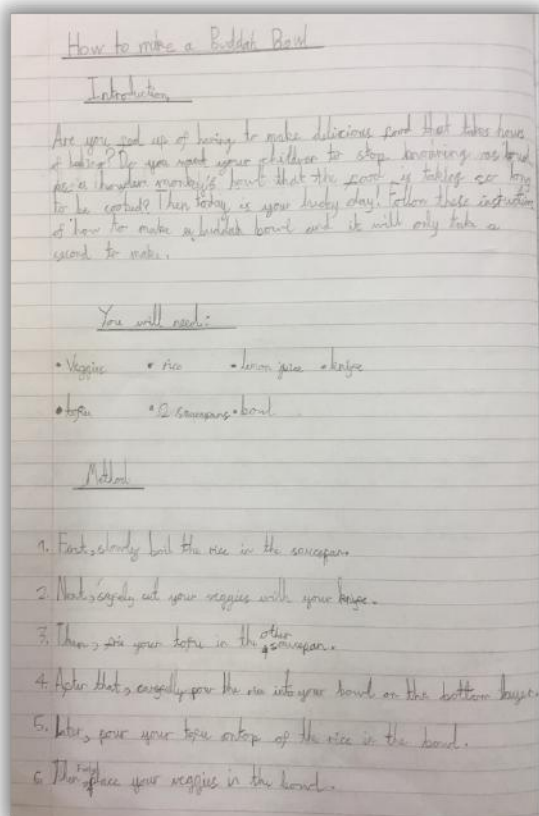 How to make a Buddah Bowl
Introduction
Are you fed up of having to make delicious food that takes hours
of baking? Do you want your children to stop as loud
as a howler monkey's howl that the food is taking so long
to be cooked? Then today is your lucky day! Follow these instruction
of how to make a buddah bowl and it will only take a
second to make.
You will need:
• Veggies • rice • lemon juice • knife
• tofu • 2 saucepans • bowl
Method
1. First, slowly boil the rice in the saucepan.
2 Next, safely cut your veggies with your knife.
3. Then, frie your tofu in the other saucepan.
4. After that, carefully pour the rice into your bowl on the bottom layer.
5. Later, pour your tofu ontop of the rice in the bowl.
6. place your veggies in the bowl.